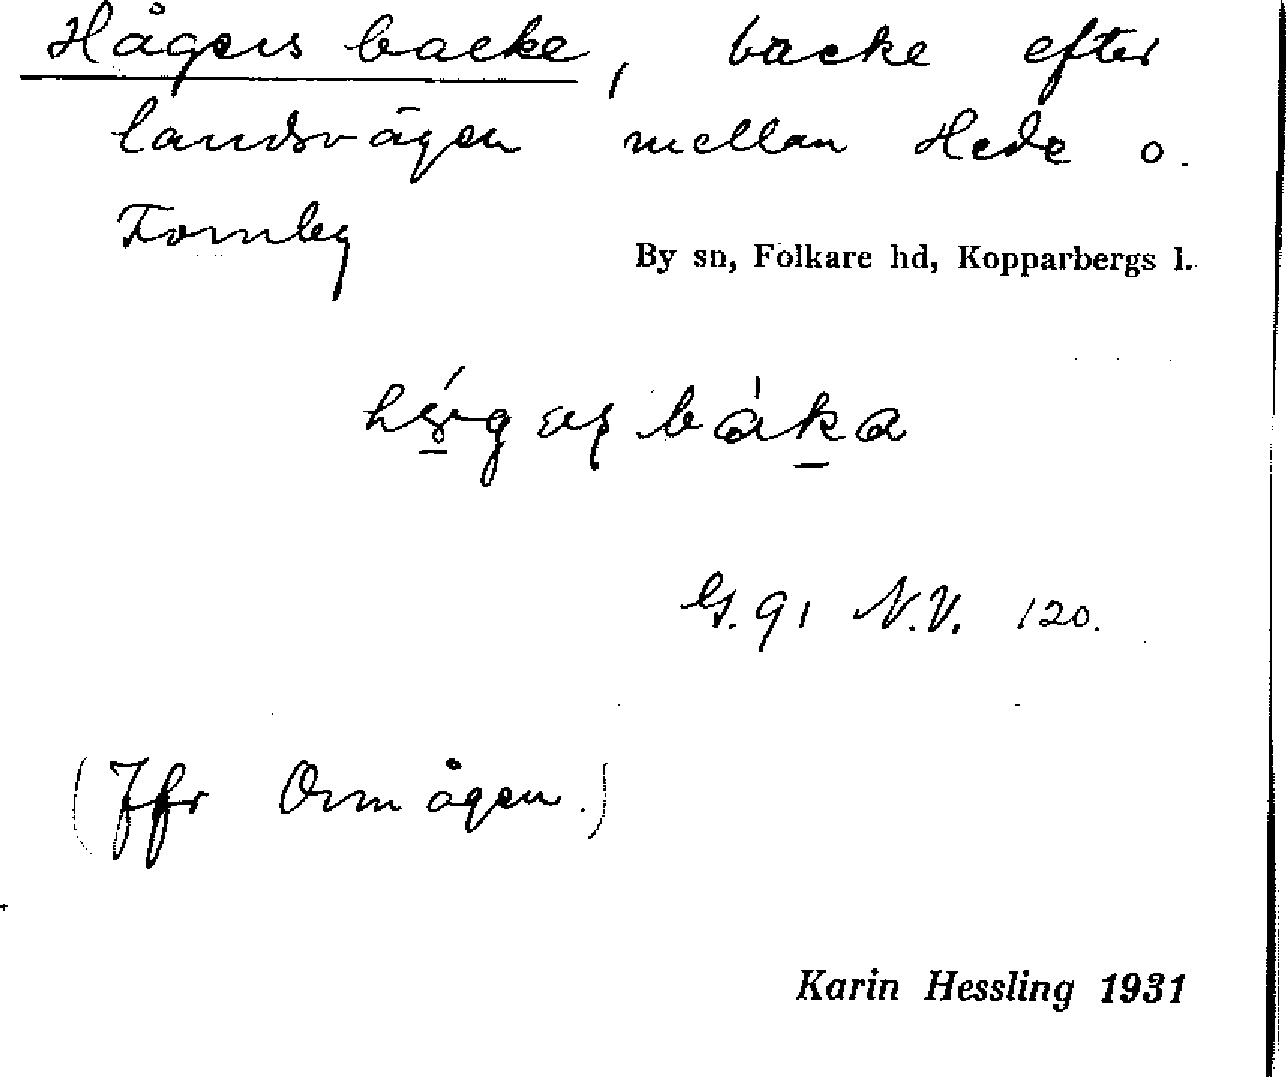 Hågers backe, backe efter
landsvägen mellan Hede o.
Fornby
By sn, Folkare hd, Kopparbergs l.
G. 91 N.V. 120.
(Jfr Ormågen.)
Karin Hessling 1931